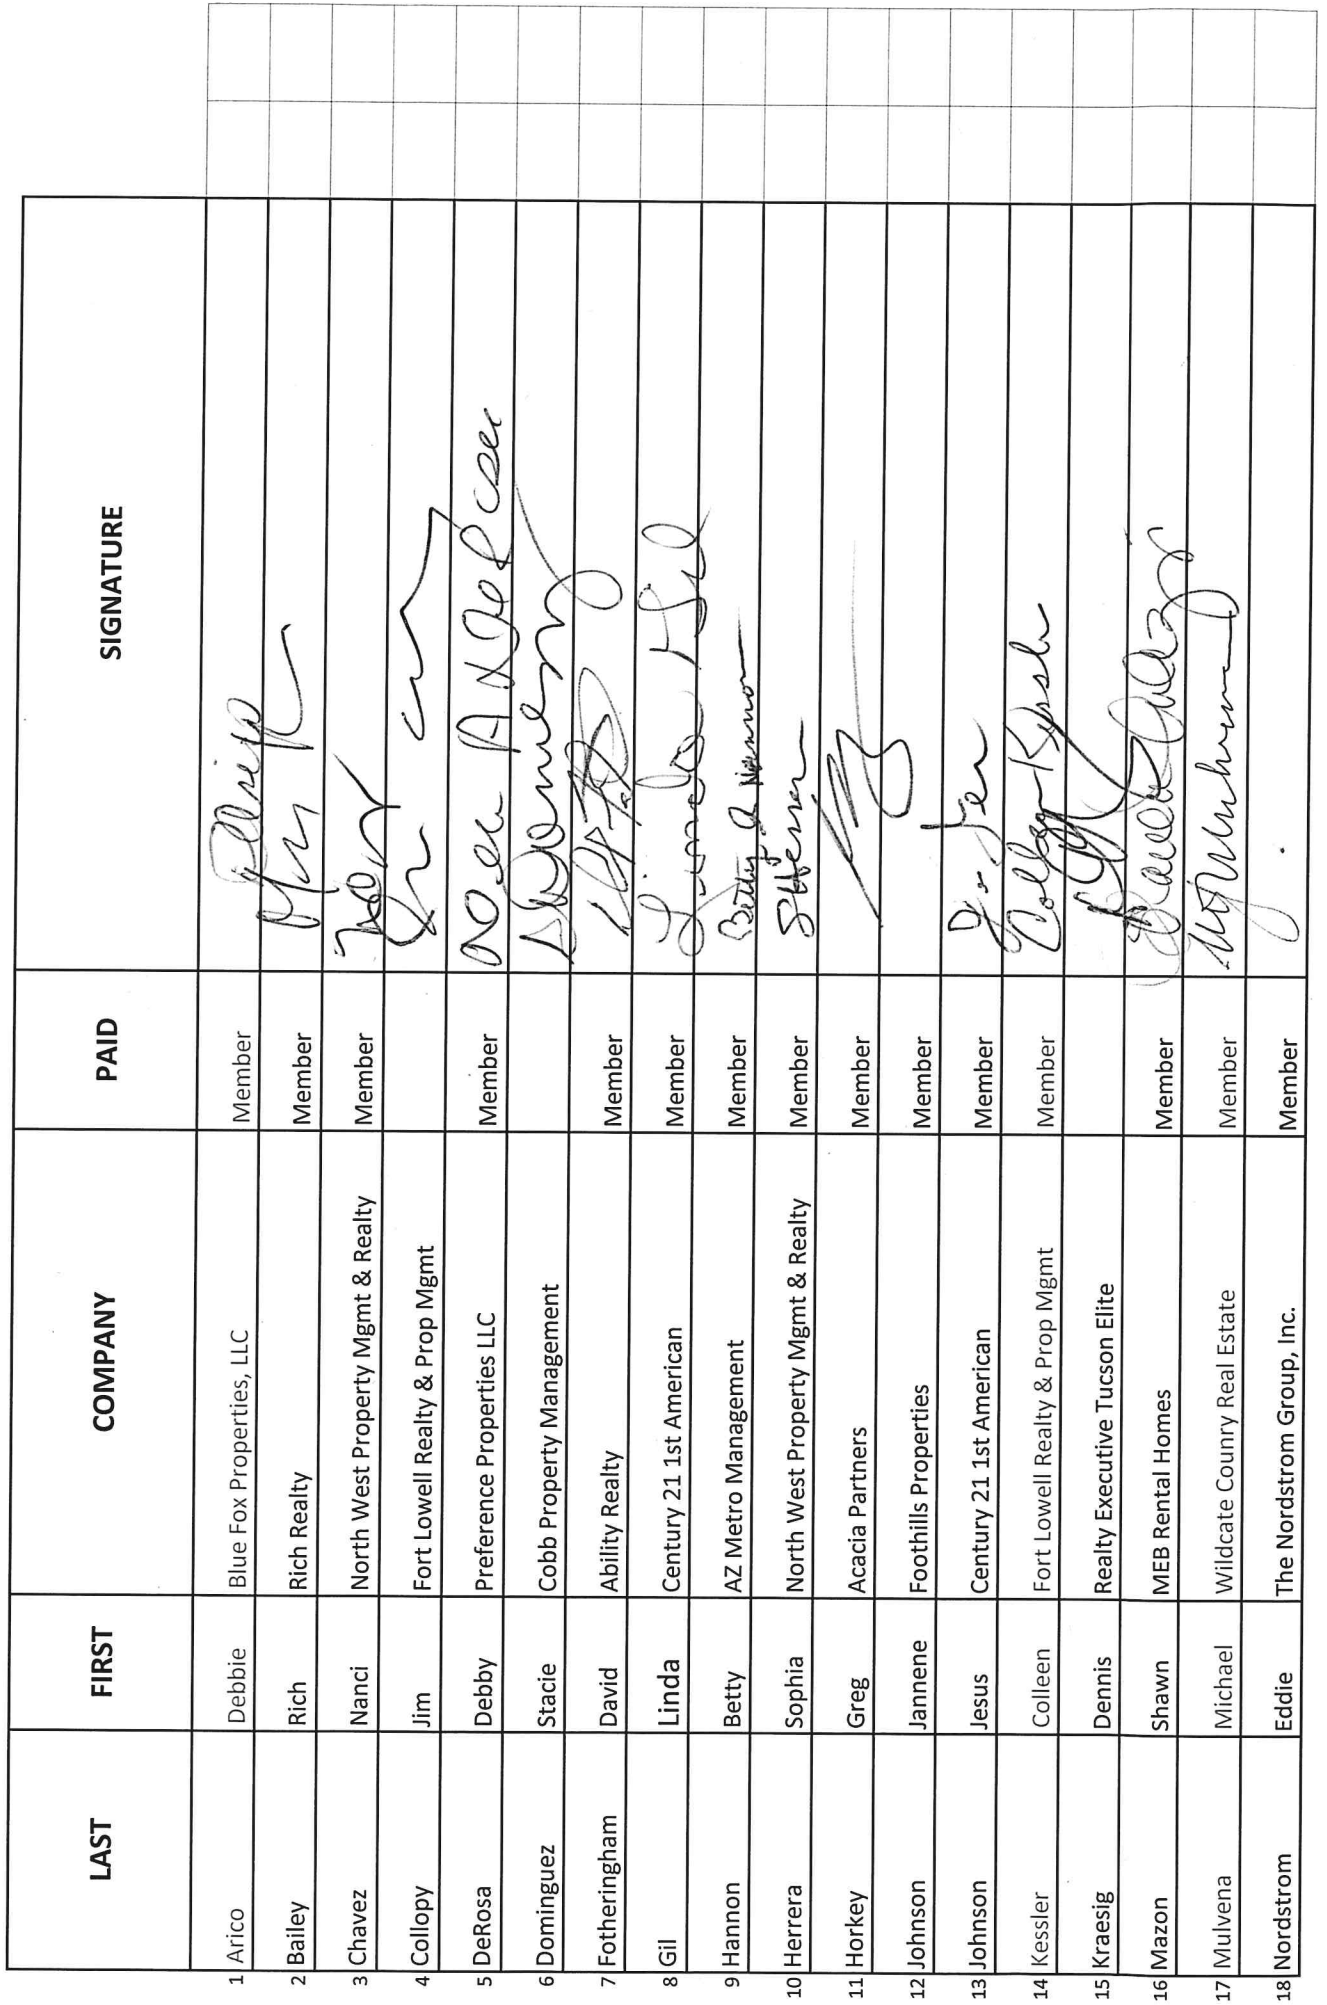 LAST FIRST COMPANY PAID SIGNATURE
1 Arico Debbie Blue Fox Properties, LLC Member
2 Bailey Rich Rich Realty Member
3 Chavez Nanci North West Property Mgmt & Realty Member
4 Collopy Jim Fort Lowell Realty & Prop Mgmt
5 DeRosa Debby Preference Properties LLC Member
6 Dominguez Stacie Cobb Property Management
7 Fotheringham David Ability Realty Member
8 Gil Linda Century 21 1st American Member Linda Gil
9 Hannon Betty AZ Metro Management Member Betty J Hannon
10 Herrera Sophia North West Property Mgmt & Realty Member
11 Horkey Greg Acacia Partners Member
12 Johnson Jannene Foothills Properties Member
13 Johnson Jesus Century 21 1st American Member
14 Kessler Colleen Fort Lowell Realty & Prop Mgmt Member Colleen Kessler
15 Kraesig Dennis Realty Executive Tucson Elite
16 Mazon Shawn MEB Rental Homes Member
17 Mulvena Michael Wildcate Counry Real Estate Member
18 Nordstrom Eddie The Nordstrom Group, Inc. Member